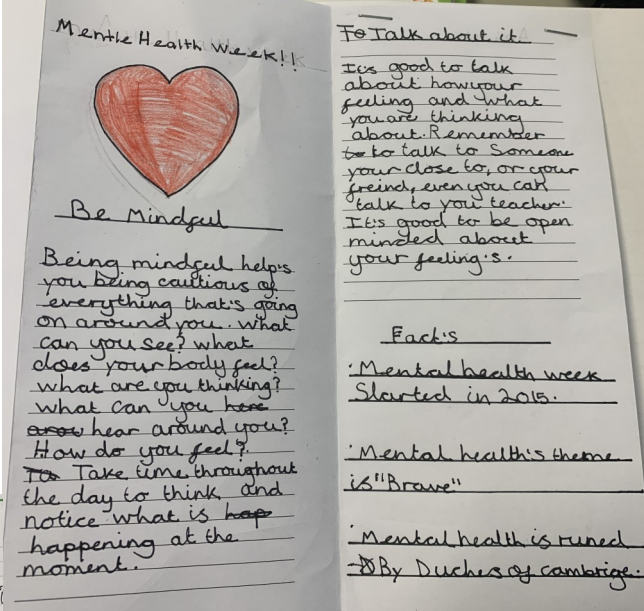 Mentle Health Week!!
Be Mindful
Being mindful help's
you being cautious of
everything that's going
on around you. What
can you see? What
does your body feel?
What are you thinking?
What can you here
arow hear around you?
How do you feel?
To Take time throughout
the day to think and
notice what is hap
happening at the
moment.
To Talk about it
It's good to talk
about how your
feeling and what
you are thinking
about. Remember
to to talk to Someone
your close to, or your
freind, even you can
talk to you teacher.
It's good to be open
minded about
your feeling's.
Fact's
·Mental health week
Started in 2015.
·Mental health's theme
is "Brave"
·Mental health is runed
By Duches of cambrige.